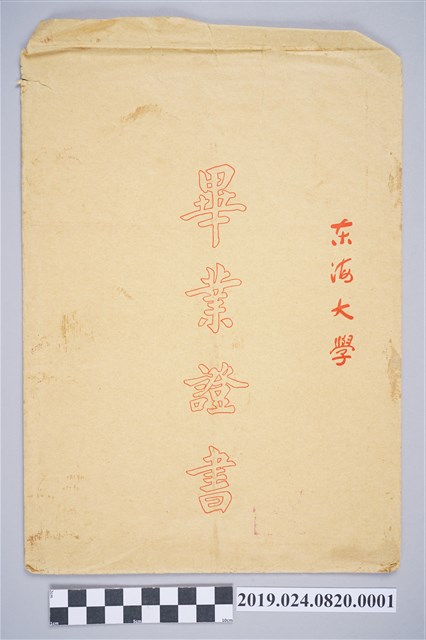 东海大學
畢業證書
2019.024.0820.0001